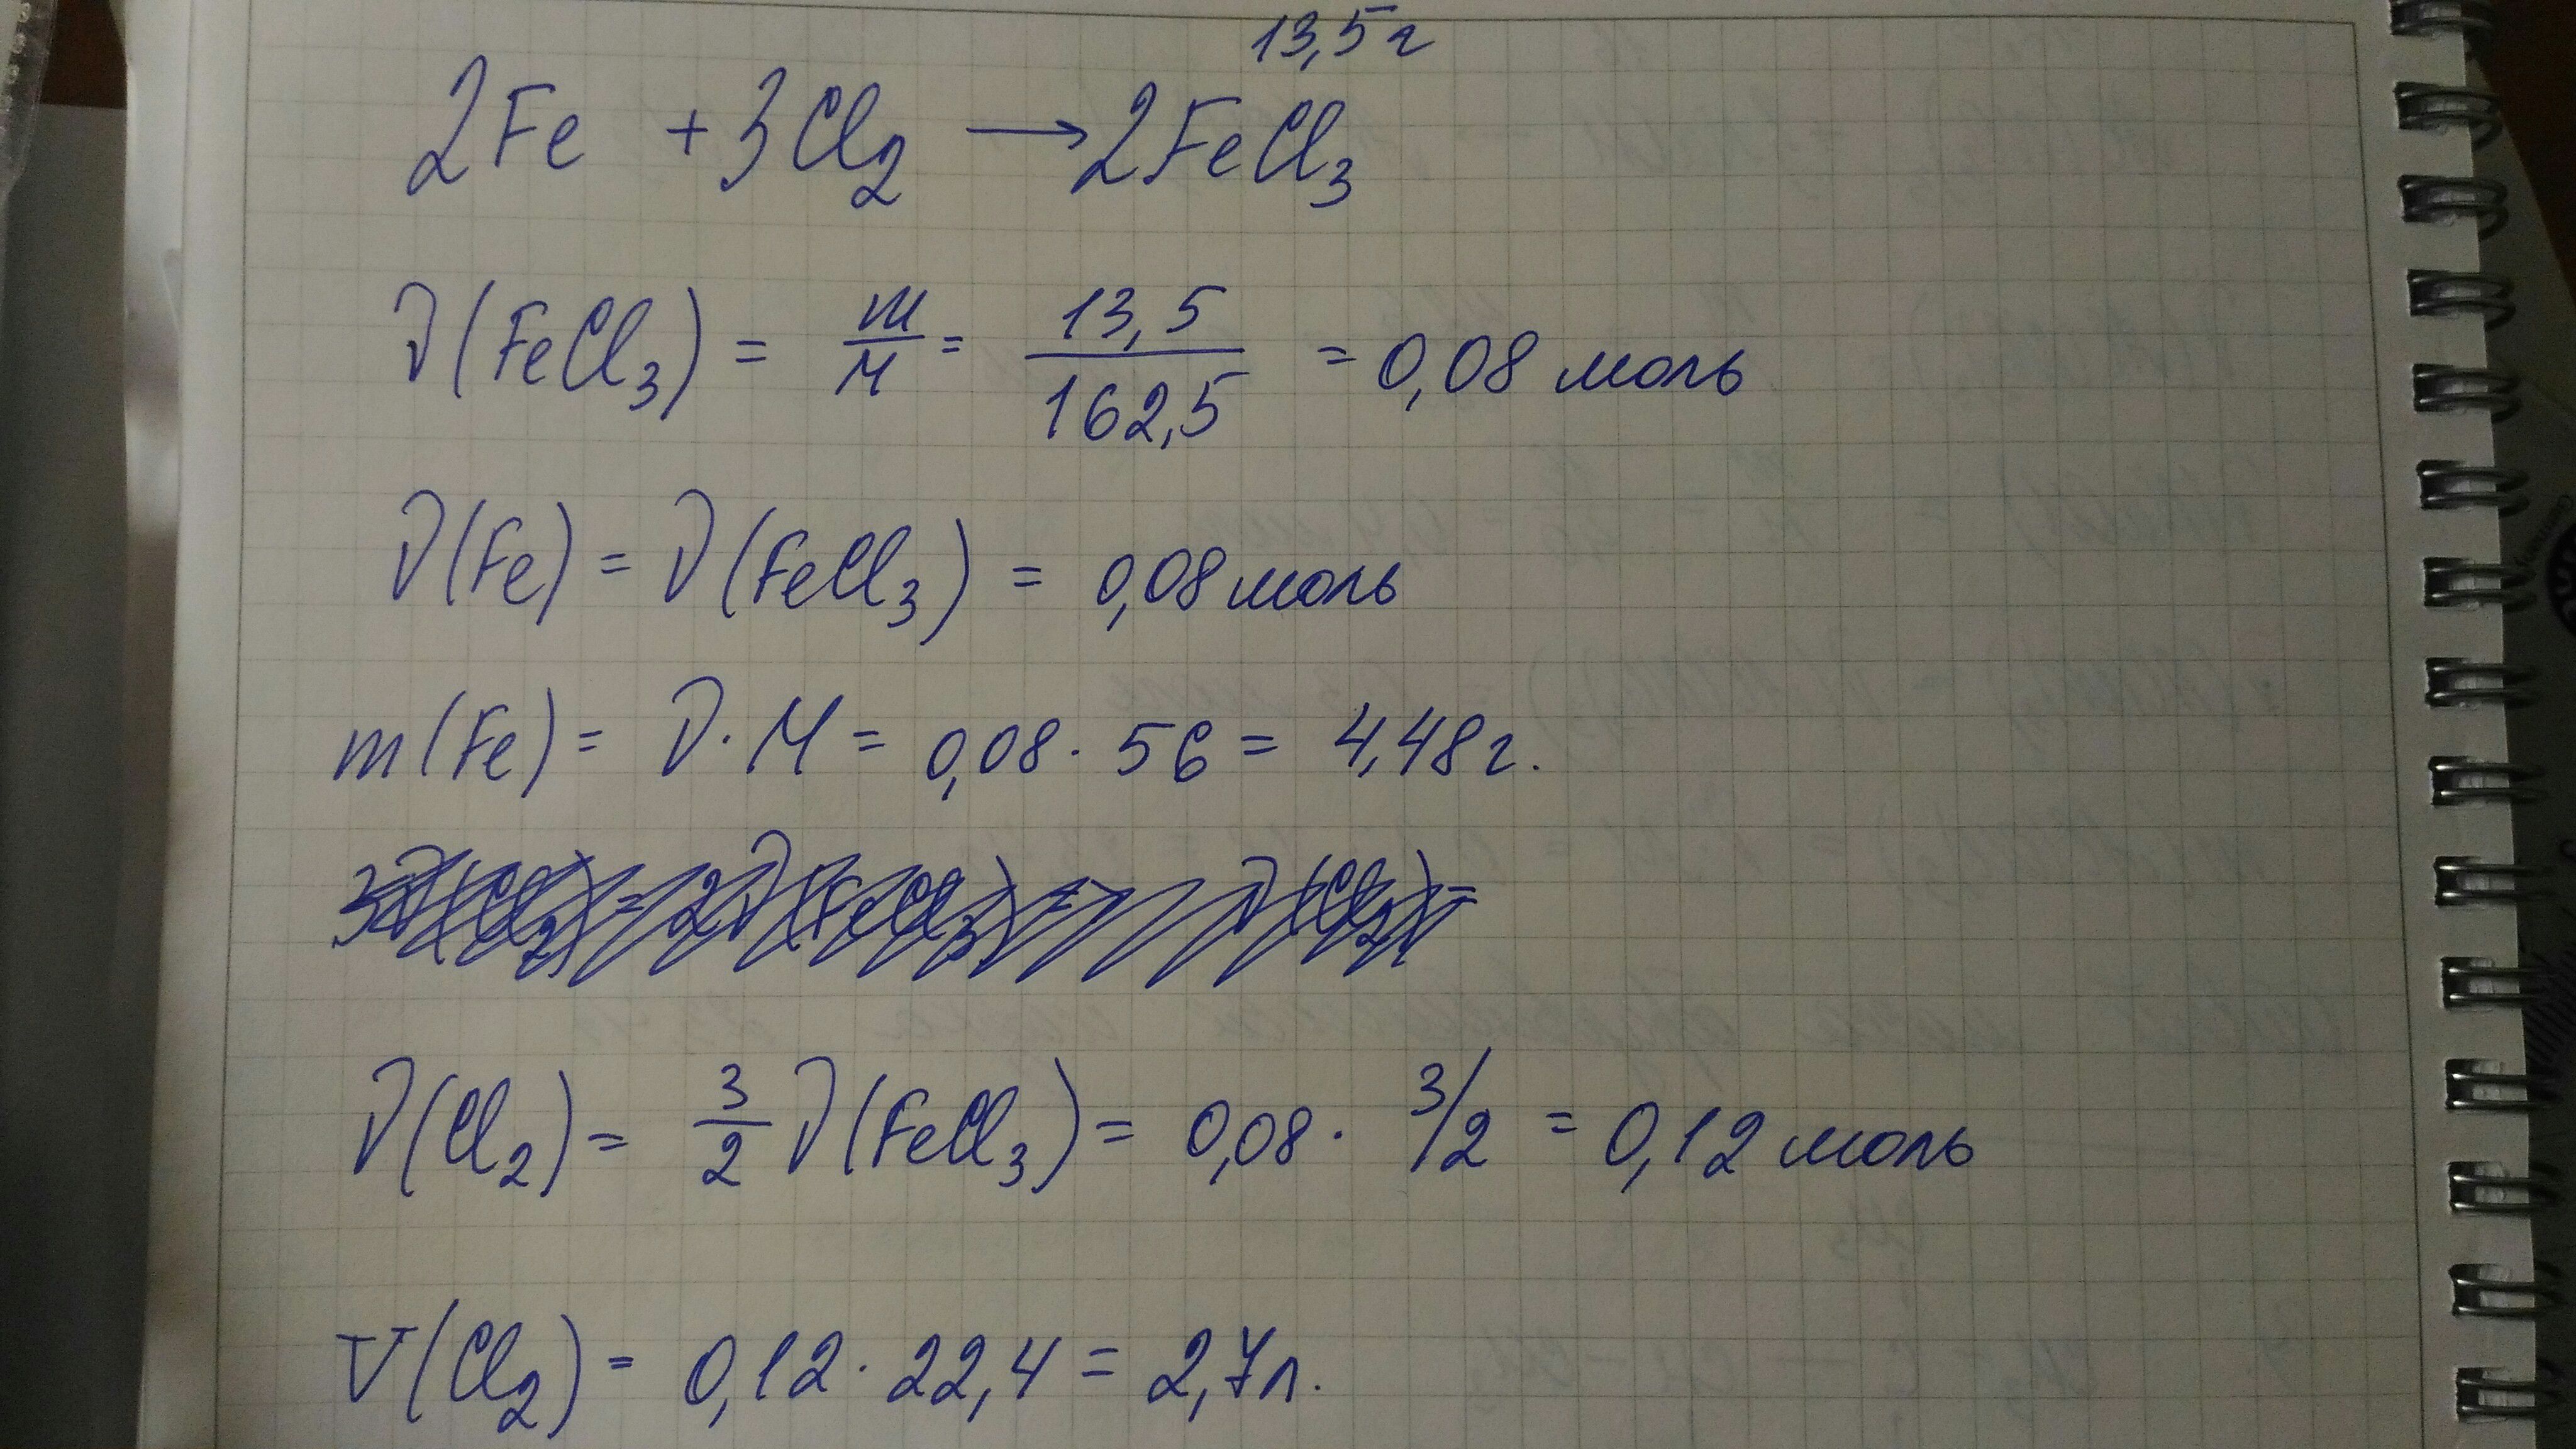 13,5 г
2Fe + 3Cl₂ → 2FeCl₃
ν(FeCl₃) = m/M = 13,5/162,5 = 0,08 моль
ν(Fe) = ν(FeCl₃) = 0,08 моль
m(Fe) = ν · M = 0,08 · 56 = 4,48 г.
3ν(Cl₂) = 2ν(FeCl₃) => ν(Cl₂) =
ν(Cl₂) = 3/2 ν(FeCl₃) = 0,08 · 3/2 = 0,12 моль
V(Cl₂) = 0,12 · 22,4 = 2,7 л.